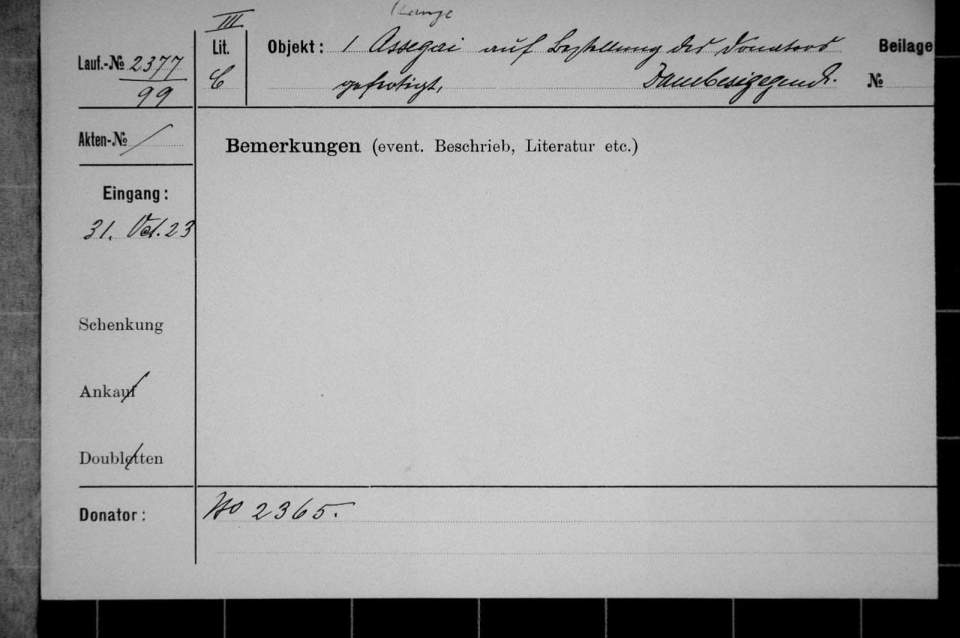 III
Lauf.-№ 2377
99
Lit.
C
Objekt: 1 Assegai auf Bestellung des Donators
gefertigt, Sambesigegend.
Beilage
№
Akten-№ /
Bemerkungen (event. Beschrieb, Literatur etc.)
Eingang:
31. Oct. 23
Schenkung
Ankauf
Doubletten
Donator: No 2365.